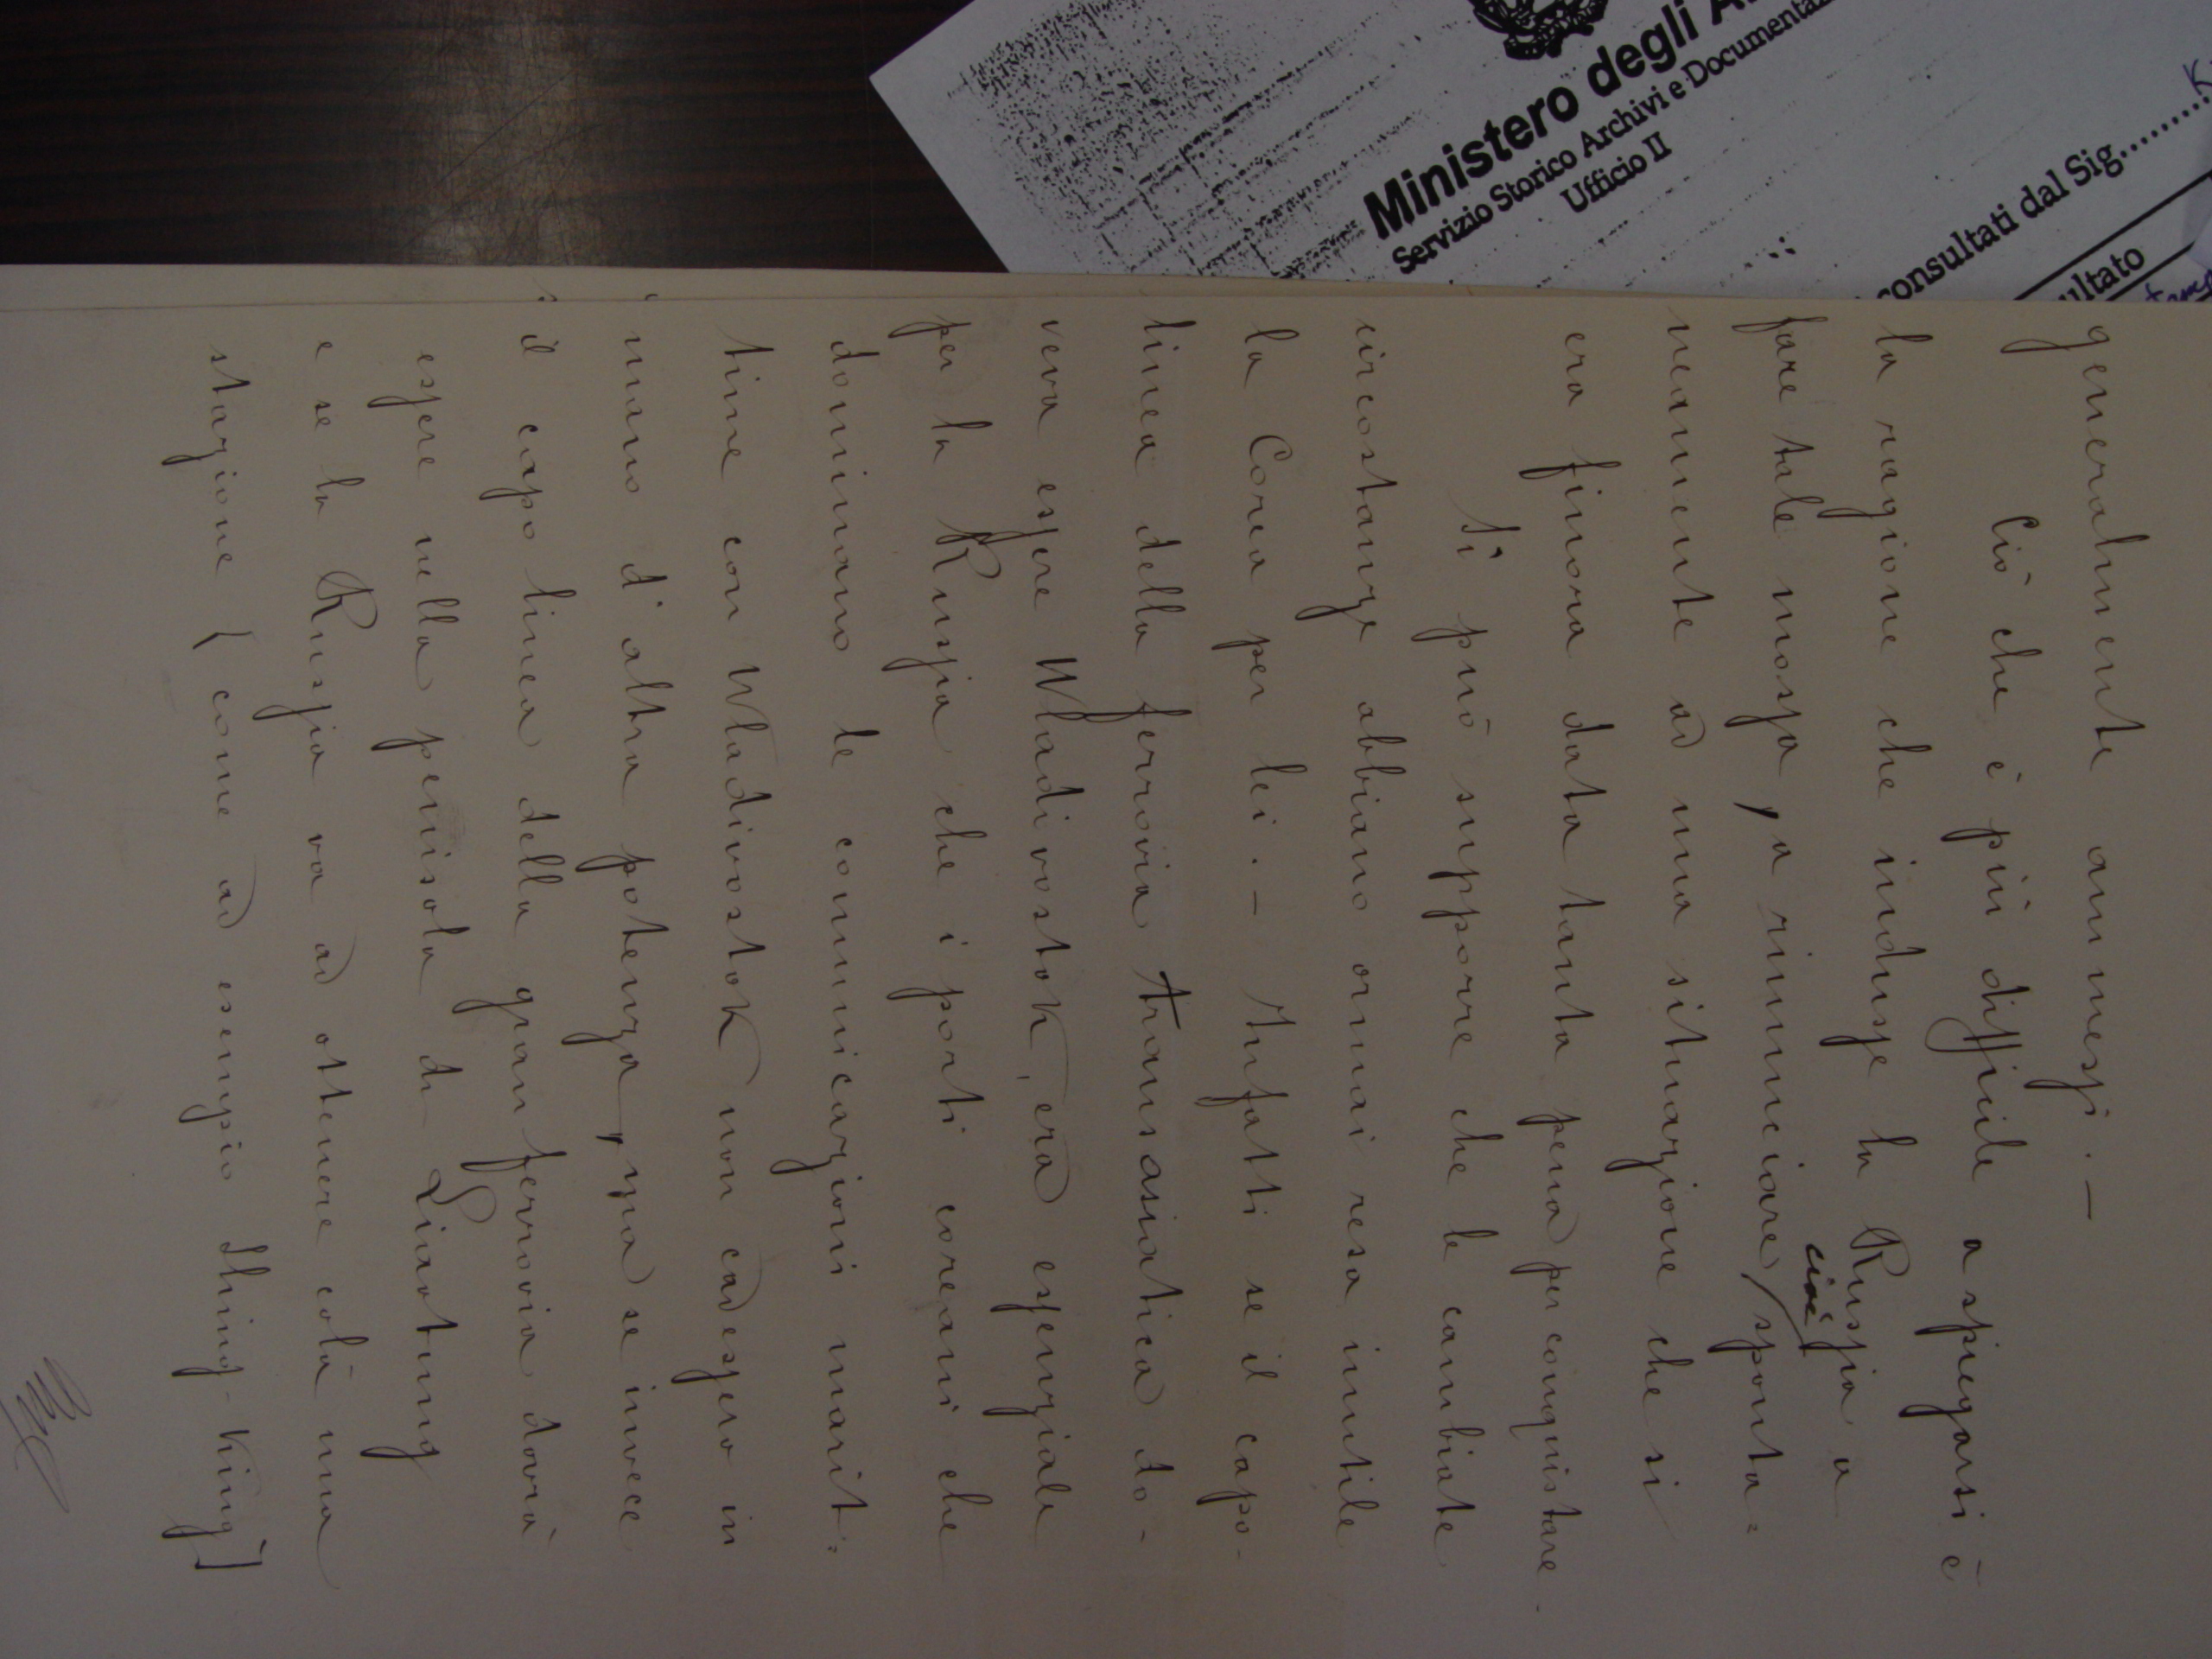 Ministero degli A
Servizio Storico Archivi e Documentaz
Ufficio II
consultati dal Sig.........
ultato
generalmente ammessi. —
Ciò che è più difficile a spiegarsi è
la ragione che indusse la Russia a
fare tale mossa, a rinunciare, cioè sponta=
neamente ad una situazione che si
era finora data tanta pena per conquistare.
Si può supporre che le cambiate
circostanze abbiano ormai resa inutile
la Corea per lei. — Infatti se il capo-
linea della ferrovia transasiatica do-
veva essere Wladivostok, era essenziale
per la Russia che i porti coreani che
dominano le comunicazioni marit:
time con Wladivostok non cadessero in
mano d'altra potenza, ma se invece
il capo linea della gran ferrovia dovrà
essere nella penisola di Liaotung
e se la Russia va ad ottenere colà una
stazione [come ad esempio Shing-King]